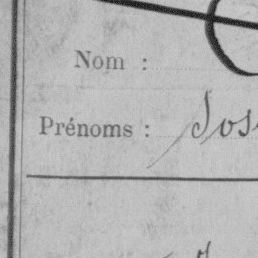 Nom :
Prénoms : Jos